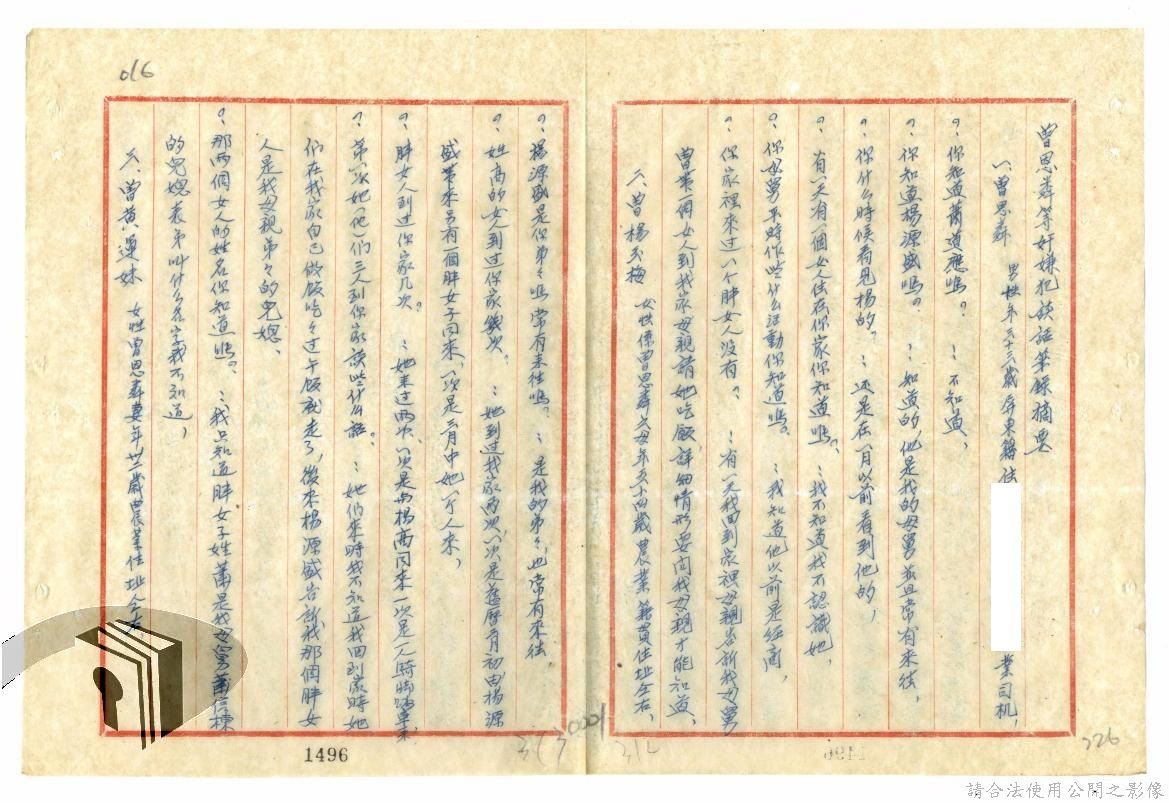 曾思森等奸嫌犯談話筆錄摘要
八、曾思森 男性年三十三歲屏東籍住 業司机,
?:你知道蕭道應嗎。 :不知道,
?:你知道楊源盛嗎。 :知道的,他是我的母舅並且常有來往,
?:你什么時候看見楊的。 :还是在一月以前看到他的,
?:有一天有一個女人住在你家你知道嗎。 :我不知道我不認識她,
?:你母舅平時作些什么活動你知道嗎。 :我知道他以前是经商,
?:你家裡來过一个胖女人没有。 :有一天我回到家裡母親告訴我母舅
曾帶一個女人到我家母親請她吃飯,詳細情形要问我母親才能知道,
六、曾楊玉梅 女性係曾思森之母年五十四歲農業籍貫住址仝右,
?:楊源盛是你弟々嗎常有來往嗎。 :是我的弟々,也常有來往
?:姓高的女人到过你家幾次。 :她到过我家两次,一次是舊歷 月初由楊源
盛帶來另有一個胖女子同來,一次是三月中她一个人來,
?:胖女人到过你家几次。 :她來过两次、一次是与楊高同來一次是一人騎脚踏車來
?:第一次她(他)们三人到你家談些什么話。 :她们來時我不知道我回到家時她
们在我家自己做飯吃々过午飯就走了,後來楊源盛告訴我那個胖女
人是我母親弟々的兒媳、
?:那两個女人的姓名你知道嗎。 :我只知道胖女子姓蕭是我母舅蕭信棟
的兒媳表弟叫什么名字我不知道,
六、曾黄運妹 女性曾思森妻年卅二歲農業住址仝右,
016
1496
313
0001
312
326
請合法使用公開之影像